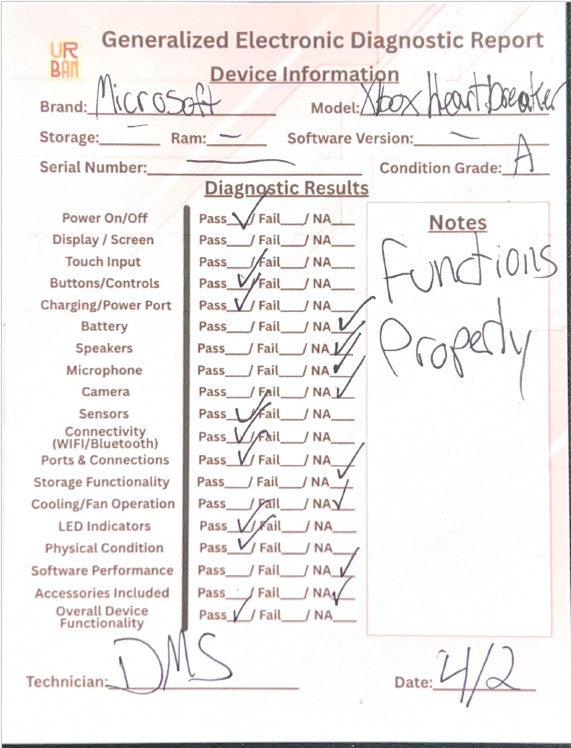 UR
BAN
Generalized Electronic Diagnostic Report
Device Information
Brand: Microsoft Model: Xbox heartbreaker
Storage: — Ram: — Software Version: —
Serial Number: — Condition Grade: A
Diagnostic Results
Power On/Off Pass ✓/ Fail___/ NA___
Display / Screen Pass___/ Fail___/ NA___
Touch Input Pass___/ Fail___/ NA___
Buttons/Controls Pass ✓/ Fail___/ NA___
Charging/Power Port Pass ✓/ Fail___/ NA___
Battery Pass___/ Fail___/ NA ✓
Speakers Pass___/ Fail___/ NA ✓
Microphone Pass___/ Fail___/ NA ✓
Camera Pass___/ Fail___/ NA ✓
Sensors Pass ✓/ Fail___/ NA___
Connectivity
(WIFI/Bluetooth) Pass ✓/ Fail___/ NA___
Ports & Connections Pass ✓/ Fail___/ NA___
Storage Functionality Pass___/ Fail___/ NA ✓
Cooling/Fan Operation Pass___/ Fail___/ NA ✓
LED Indicators Pass ✓/ Fail___/ NA___
Physical Condition Pass ✓/ Fail___/ NA___
Software Performance Pass___/ Fail___/ NA ✓
Accessories Included Pass___/ Fail___/ NA ✓
Overall Device
Functionality Pass ✓/ Fail___/ NA___
Notes
Functions
Properly
Technician: DMS Date: 4/2